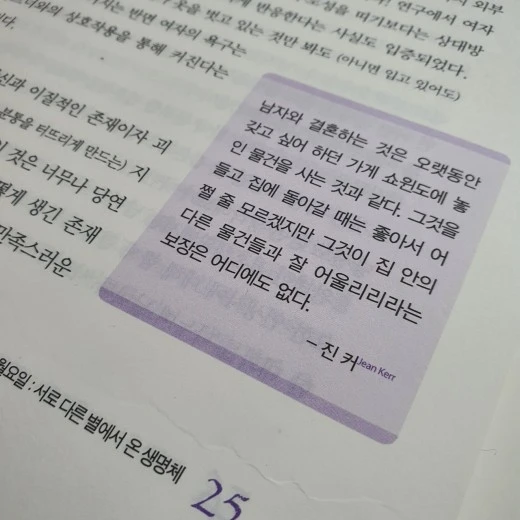 외부
연구에서 여자
반응한다는 사실도 입증되었다.
벗고 있는 것만 봐도 (아니면 입고 있어도)
반면 여자의 욕구는
상호작용을 통해 커진다는
이질적인 존재이자 괴
터뜨리게 만드는) 지
것은 너무나 당연
생긴 존재
남자와 결혼하는 것은 오랫동안
갖고 싶어 하던 가게 쇼윈도에 놓
인 물건을 사는 것과 같다. 그것을
들고 집에 돌아갈 때는 좋아서 어
쩔 줄 모르겠지만 그것이 집 안의
다른 물건들과 잘 어울리리라는
보장은 어디에도 없다.
– 진 커 Jean Kerr
월요일 : 서로 다른 별에서 온 생명체
25